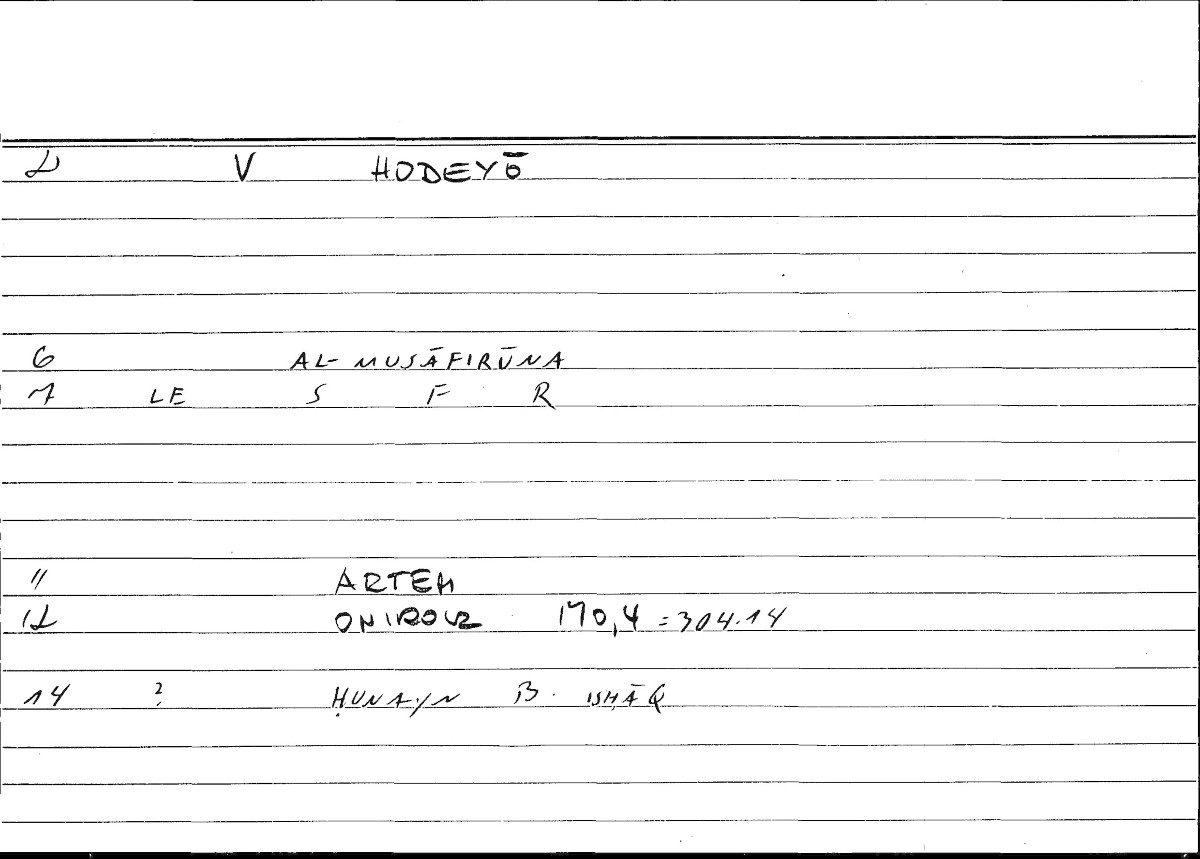 2 V HODEYŌ
6 AL-MUSĀFIRŪNA
7 LE S F R
11 ARTEM
12 ONIROCR 170,4 = 304.14
14 ? ḤUNAYN B. ISḤĀQ